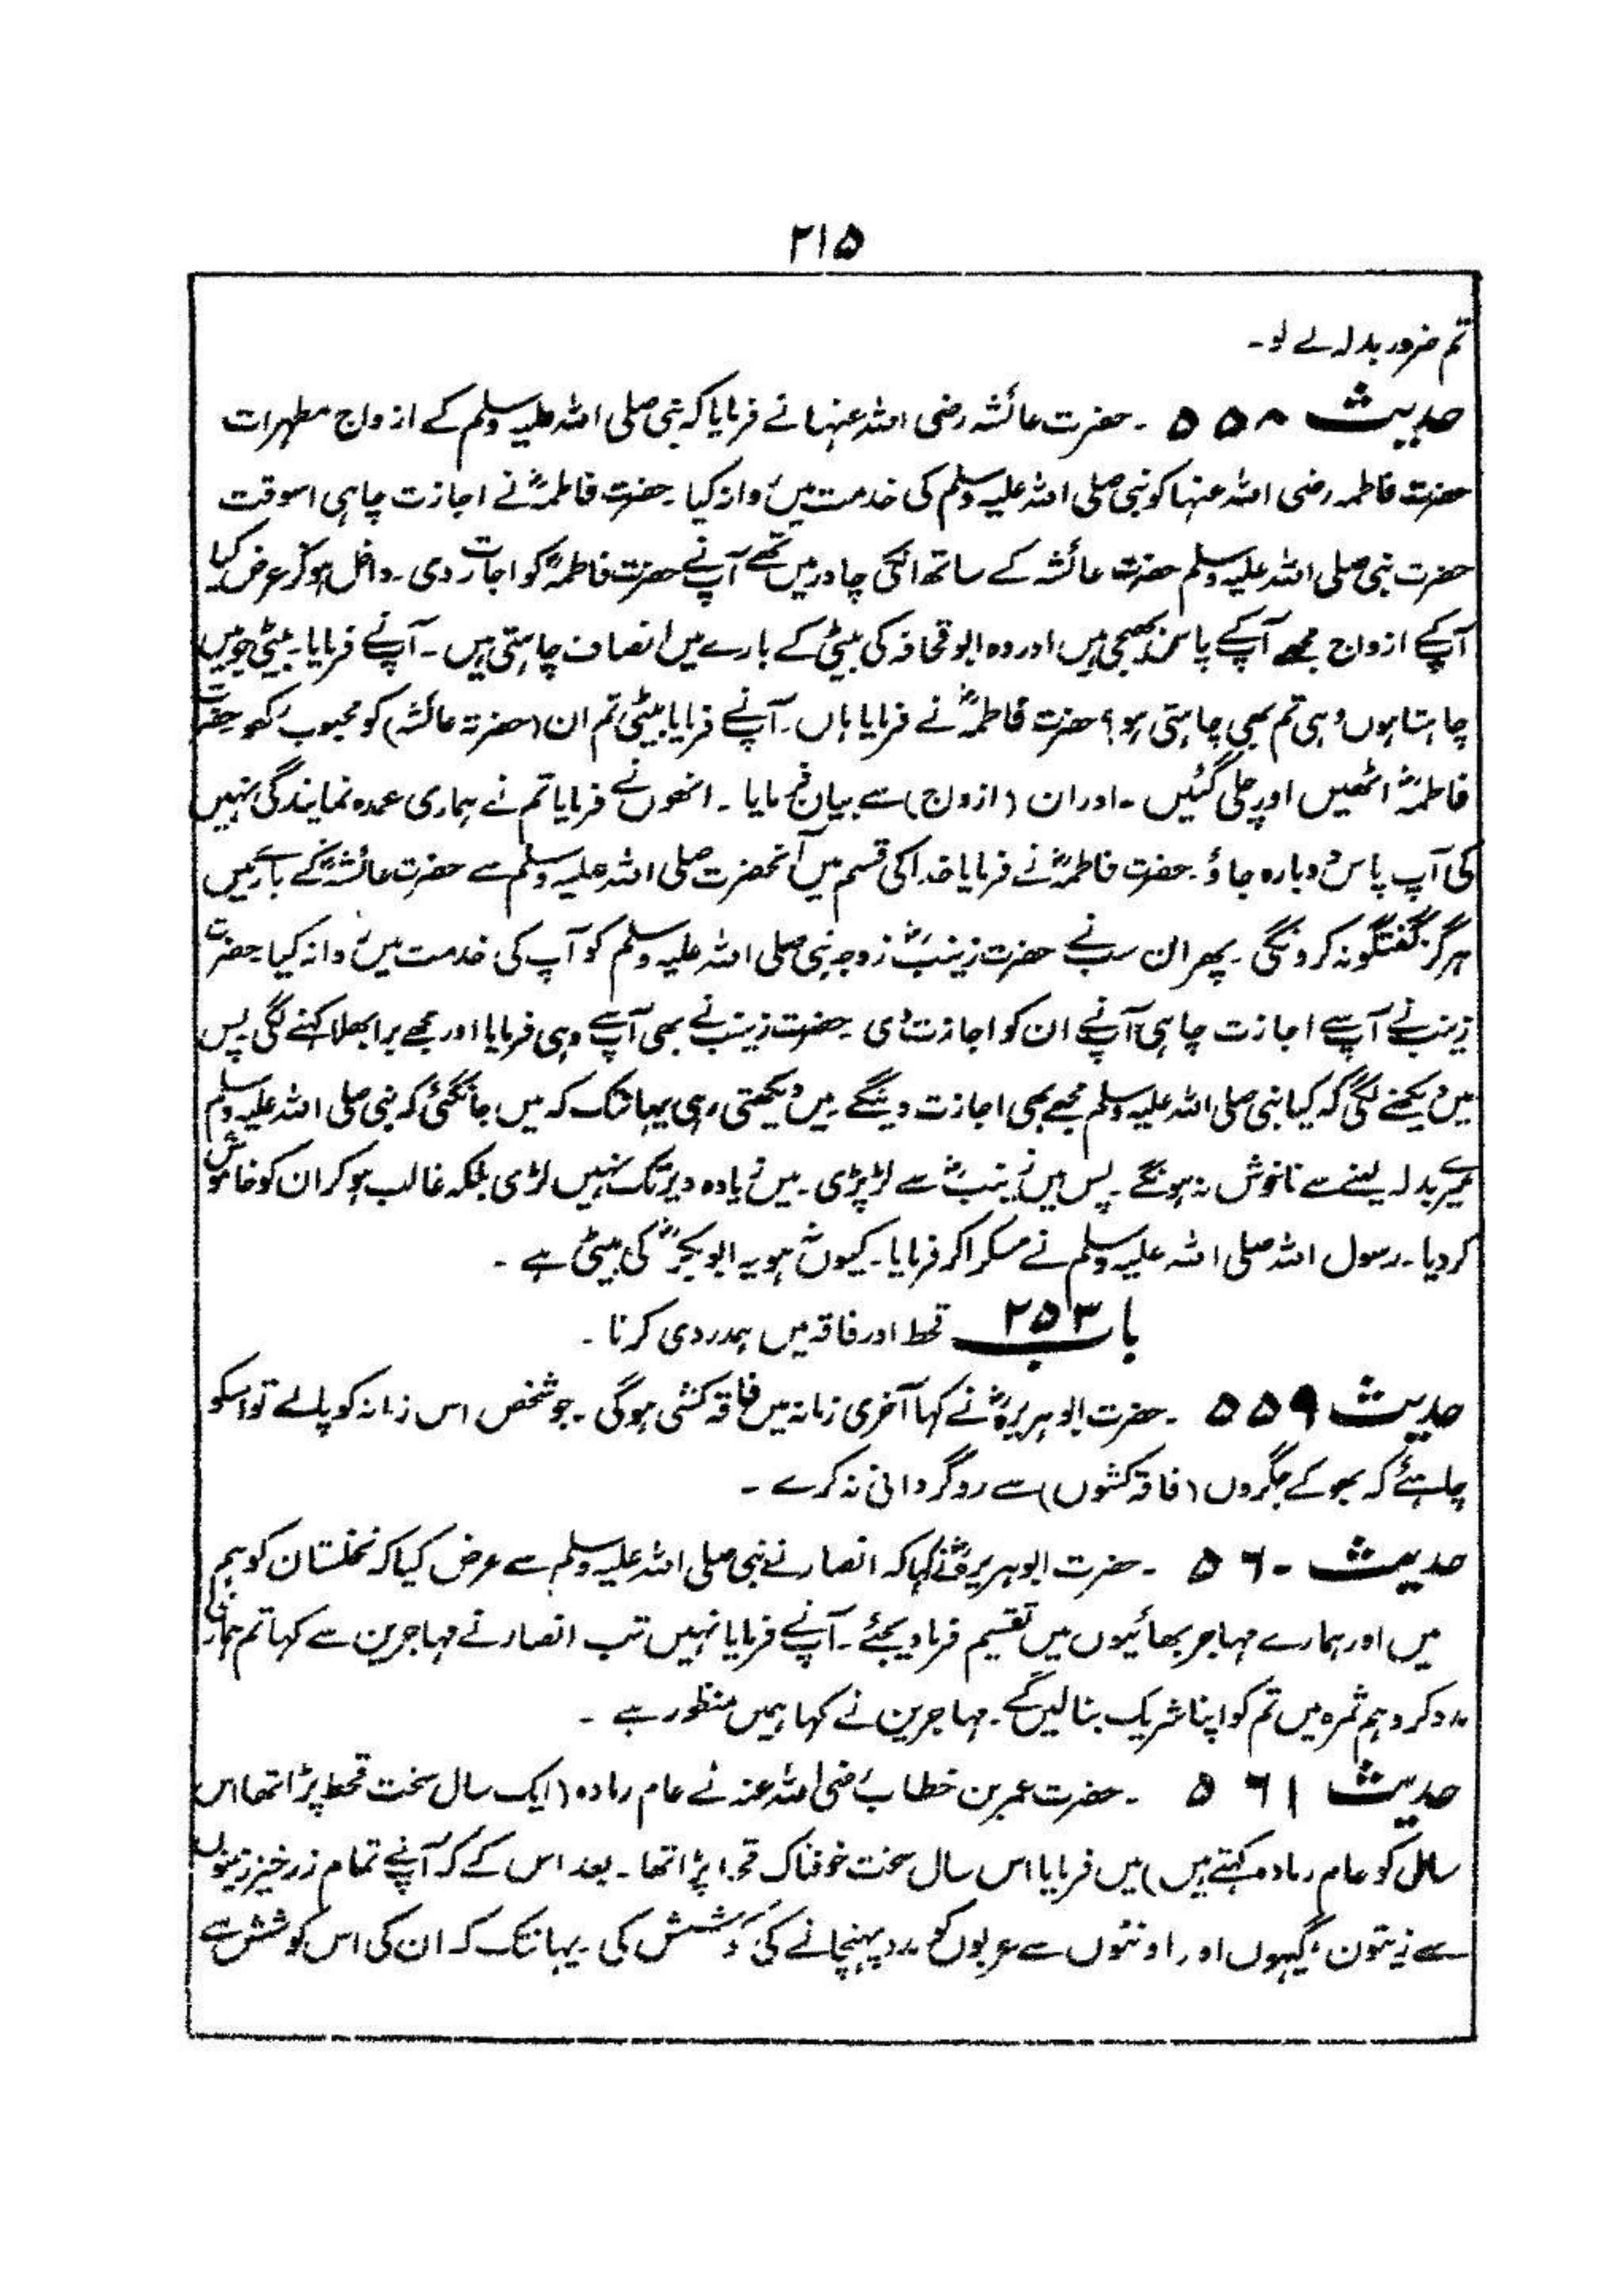 ۲۱۵
تم ضرور بدلہ لے لو۔
حدیث ۵۵۸ ۔ حضرت عائشہ رضی اللہ عنہا نے فرمایا کہ نبی صلی اللہ علیہ وسلم کے ازواج مطہرات
حضرت فاطمہ رضی اللہ عنہا کو نبی صلی اللہ علیہ وسلم کی خدمت میں روانہ کیا۔ حضرت فاطمہؓ نے اجازت چاہی اسوقت
حضرت نبی صلی اللہ علیہ وسلم حضرت عائشہ کے ساتھ انکی چادر میں تھے آپنے حضرت فاطمہؓ کو اجازت دی۔ داخل ہو کر عرض کیا
آپکے ازواج مجھے آپکے پاس بھیجی ہیں اور وہ ابو قحافہ کی بیٹی کے بارے میں انصاف چاہتی ہیں۔ آپنے فرمایا۔ بیٹی جو میں
چاہتا ہوں وہی تم بھی چاہتی ہو؟ حضرت فاطمہؓ نے فرمایا ہاں۔ آپنے فرمایا بیٹی تم ان (حضرت عائشہ) کو محبوب رکھو حضرت
فاطمہؓ اٹھیں اور چلی گئیں۔ اور ان (ازواج) سے بیان فرمایا۔ انھوں نے فرمایا تم نے ہماری عمدہ نمایندگی نہیں
کی آپ پاس دوبارہ جاؤ۔ حضرت فاطمہؓ نے فرمایا خدا کی قسم میں آنحضرت صلی اللہ علیہ وسلم سے حضرت عائشہؓ کے بارے میں
ہرگز گفتگو نہ کرونگی۔ پھر ان سب نے حضرت زینبؓ زوجہ نبی صلی اللہ علیہ وسلم کو آپ کی خدمت میں روانہ کیا حضرت
زینب نے آپ سے اجازت چاہی آپنے ان کو اجازت دی۔ حضرت زینب نے بھی آپسے وہی فرمایا اور مجھے برا بھلا کہنے لگی پس
میں دیکھنے لگی کہ کیا نبی صلی اللہ علیہ وسلم مجھے بھی اجازت دینگے۔ میں دیکھتی رہی یہانتک کہ میں جانگئی کہ نبی صلی اللہ علیہ وسلم
میرے بدلہ لینے سے ناخوش نہ ہونگے۔ پس میں زینبؓ سے لڑ پڑی۔ میں زیادہ دیر تک نہیں لڑی بلکہ غالب ہو کر ان کو خاموش
کر دیا۔ رسول اللہ صلی اللہ علیہ وسلم نے مسکرا کر فرمایا۔ کیوں نہ ہو یہ ابوبکرؓ کی بیٹی ہے۔
باب ۲۵۳ قحط اور فاقہ میں ہمدردی کرنا۔
حدیث ۵۵۹ ۔ حضرت ابو ہریرہؓ نے کہا آخری زمانہ میں فاقہ کشی ہوگی۔ جو شخص اس زمانہ کو پالے تو اسکو
چاہئے کہ بھوکے جگروں (فاقہ کشوں) سے روگردانی نہ کرے۔
حدیث ۵۶۰ ۔ حضرت ابو ہریرہؓ نے کہا کہ انصار نے نبی صلی اللہ علیہ وسلم سے عرض کیا کہ نخلستان کو ہم
میں اور ہمارے مہاجر بھائیوں میں تقسیم فرما دیجئے۔ آپنے فرمایا نہیں تب انصار نے مہاجرین سے کہا تم ہماری
مدد کرو ہم ثمرہ میں تم کو اپنا شریک بنالیں گے۔ مہاجرین نے کہا ہمیں منظور ہے۔
حدیث ۵۶۱ ۔ حضرت عمر بن خطاب رضی اللہ عنہ نے عام رمادہ (ایک سال سخت قحط پڑا تھا اس
سال کو عام رمادہ کہتے ہیں) میں فرمایا اس سال سخت خوفناک قحط پڑا تھا۔ بعد اس کے کہ آپنے تمام زرخیز زمینوں
سے زیتون، گیہوں اور اونٹوں سے عربوں کو مدد پہنچانے کی کوشش کی۔ یہانتک کہ ان کی اس کوشش سے